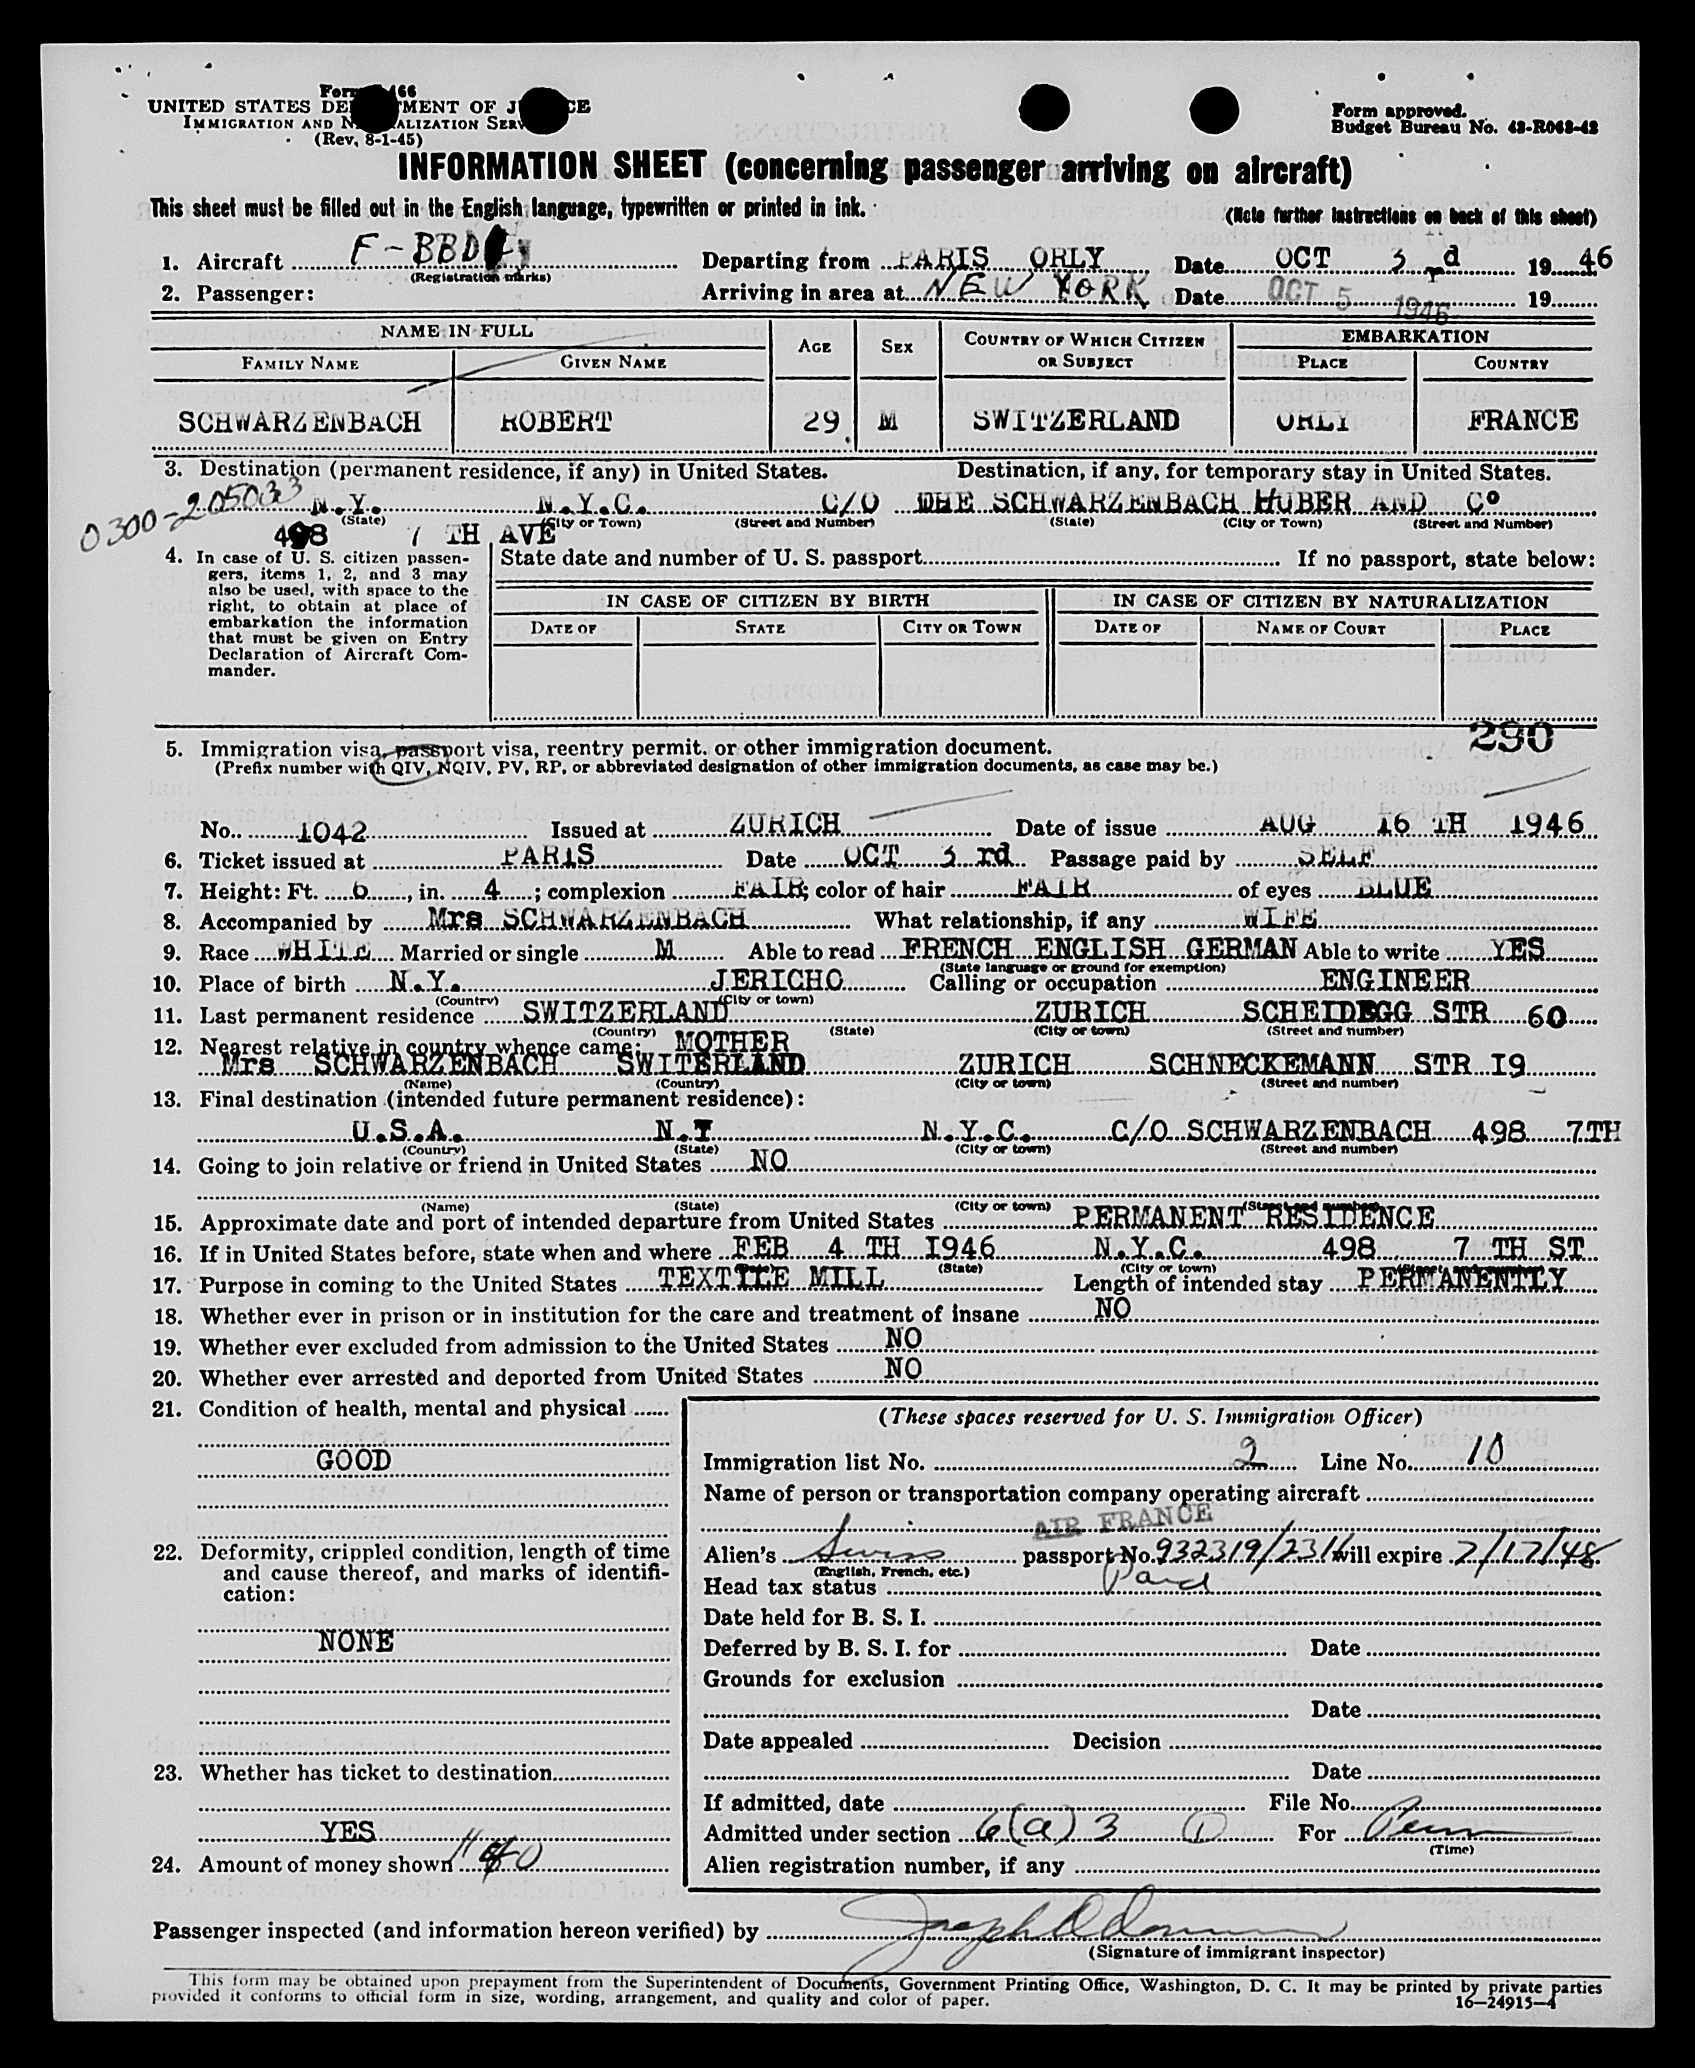 Form 466
UNITED STATES DEPARTMENT OF JUSTICE
IMMIGRATION AND NATURALIZATION SERVICE
(Rev. 8-1-45)
Form approved.
Budget Bureau No. 43-R043-42
INFORMATION SHEET (concerning passenger arriving on aircraft)
This sheet must be filled out in the English language, typewritten or printed in ink.
(Note further instructions on back of this sheet)
1. Aircraft F-BBD Departing from PARIS ORLY Date OCT 3 rd 1946
(Registration marks)
2. Passenger: Arriving in area at NEW YORK Date OCT 5 1946 19
NAME IN FULL AGE SEX COUNTRY OF WHICH CITIZEN OR SUBJECT EMBARKATION
FAMILY NAME GIVEN NAME PLACE COUNTRY
SCHWARZENBACH ROBERT 29 M SWITZERLAND ORLY FRANCE
3. Destination (permanent residence, if any) in United States. Destination, if any, for temporary stay in United States.
0300-205033 N.Y. N.Y.C. C/O THE SCHWARZENBACH HUBER AND Co
(State) (City or Town) (Street and Number) (State) (City or Town) (Street and Number)
498 7 TH AVE
4. In case of U. S. citizen passengers, items 1, 2, and 3 may also be used, with space to the right, to obtain at place of embarkation the information that must be given on Entry Declaration of Aircraft Commander.
State date and number of U. S. passport If no passport, state below:
IN CASE OF CITIZEN BY BIRTH IN CASE OF CITIZEN BY NATURALIZATION
DATE OF STATE CITY OR TOWN DATE OF NAME OF COURT PLACE
290
5. Immigration visa, passport visa, reentry permit, or other immigration document.
(Prefix number with QIV, NQIV, PV, RP, or abbreviated designation of other immigration documents, as case may be.)
No. 1042 Issued at ZURICH Date of issue AUG 16 TH 1946
6. Ticket issued at PARIS Date OCT 3 rd Passage paid by SELF
7. Height: Ft. 6, in. 4; complexion FAIR; color of hair FAIR of eyes BLUE
8. Accompanied by Mrs SCHWARZENBACH What relationship, if any WIFE
9. Race WHITE Married or single M Able to read FRENCH ENGLISH GERMAN Able to write YES
(State language or ground for exemption)
10. Place of birth N.Y. JERICHO Calling or occupation ENGINEER
(Country) (City or town)
11. Last permanent residence SWITZERLAND ZURICH SCHEIDEGG STR 60
(Country) (State) (City or town) (Street and number)
12. Nearest relative in country whence came: MOTHER
Mrs SCHWARZENBACH SWITERLAND ZURICH SCHNECKEMANN STR I9
(Name) (Country) (City or town) (Street and number)
13. Final destination (intended future permanent residence):
U.S.A. N.Y N.Y.C. C/O SCHWARZENBACH 498 7TH
(Country) (State) (City or town) (Street and number)
14. Going to join relative or friend in United States NO
(Name) (State) (City or town) (Street and number)
15. Approximate date and port of intended departure from United States PERMANENT RESIDENCE
16. If in United States before, state when and where FEB 4 TH I946 N.Y.C. 498 7 TH ST
(State) (City or town) (Street and number)
17. Purpose in coming to the United States TEXTILE MILL Length of intended stay PERMANENTLY
18. Whether ever in prison or in institution for the care and treatment of insane NO
19. Whether ever excluded from admission to the United States NO
20. Whether ever arrested and deported from United States NO
21. Condition of health, mental and physical
GOOD
22. Deformity, crippled condition, length of time and cause thereof, and marks of identification:
NONE
23. Whether has ticket to destination
YES
24. Amount of money shown
(These spaces reserved for U. S. Immigration Officer)
Immigration list No. 2 Line No. 10
Name of person or transportation company operating aircraft
AIR FRANCE
Alien's Swiss passport No. 932319/2316 will expire 7/17/48
(English, French, etc.)
Head tax status Paid
Date held for B. S. I.
Deferred by B. S. I. for Date
Grounds for exclusion
Date
Date appealed Decision
Date
If admitted, date File No.
Admitted under section 6(a)3 (1) For Perm
(Time)
Alien registration number, if any
Passenger inspected (and information hereon verified) by
(Signature of immigrant inspector)
This form may be obtained upon prepayment from the Superintendent of Documents, Government Printing Office, Washington, D. C. It may be printed by private parties
provided it conforms to official form in size, wording, arrangement, and quality and color of paper.
16—24915-4